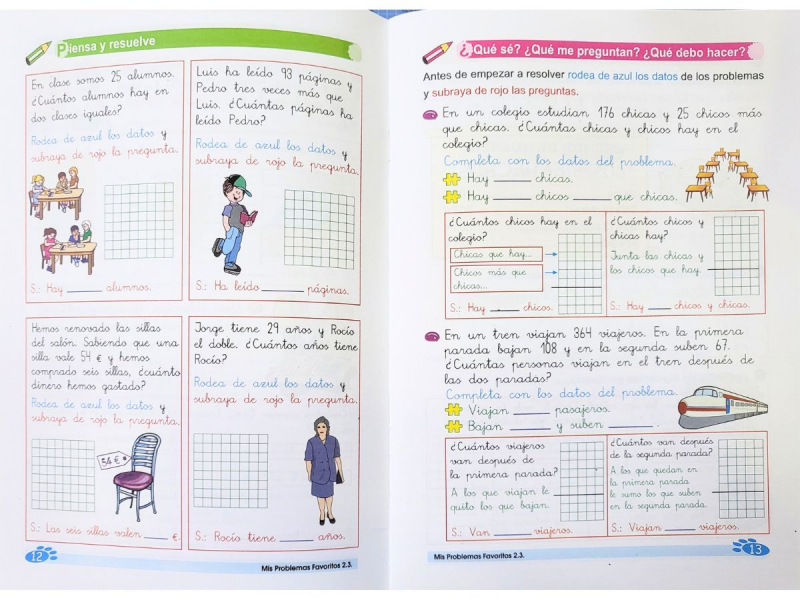 Piensa y resuelve
En clase somos 25 alumnos.
¿Cuántos alumnos hay en
dos clases iguales?
Rodea de azul los datos y
subraya de rojo la pregunta.
S.: Hay ________ alumnos.
Luis ha leído 93 páginas y
Pedro tres veces más que
Luis. ¿Cuántas páginas ha
leído Pedro?
Rodea de azul los datos y
subraya de rojo la pregunta.
S.: Ha leído ________ páginas.
Hemos renovado las sillas
del salón. Sabiendo que una
silla vale 54 € y hemos
comprado seis sillas, ¿cuánto
dinero hemos gastado?
Rodea de azul los datos y
subraya de rojo la pregunta.
54 €
S.: Las seis sillas valen ____ €.
Jorge tiene 29 años y Rocío
el doble. ¿Cuántos años tiene
Rocío?
Rodea de azul los datos y
subraya de rojo la pregunta.
S.: Rocío tiene ______ años.
12
Mis Problemas Favoritos 2.3.
¿Qué sé? ¿Qué me preguntan? ¿Qué debo hacer?
Antes de empezar a resolver rodea de azul los datos de los problemas
y subraya de rojo las preguntas.
En un colegio estudian 176 chicas y 25 chicos más
que chicas. ¿Cuántas chicas y chicos hay en el
colegio?
Completa con los datos del problema.
Hay ______ chicas.
Hay ______ chicos ______ que chicas.
¿Cuántos chicos hay en el
colegio?
Chicas que hay...
Chicos más que
chicas...
S.: Hay ____ chicos.
¿Cuántos chicos y
chicas hay?
Junta las chicas y
los chicos que hay.
S.: Hay ____ chicos y chicas.
En un tren viajan 364 viajeros. En la primera
parada bajan 108 y en la segunda suben 67.
¿Cuántas personas viajan en el tren después de
las dos paradas?
Completa con los datos del problema.
Viajan ______ pasajeros.
Bajan ______ y suben ______ .
¿Cuántos viajeros
van después de
la primera parada?
A los que viajan le
quito los que bajan.
S.: Van ______ viajeros.
¿Cuántos van después
de la segunda parada?
A los que quedan en
la primera parada
le sumo los que suben
en la segunda parada.
S.: Viajan ______ viajeros.
Mis Problemas Favoritos 2.3.
13